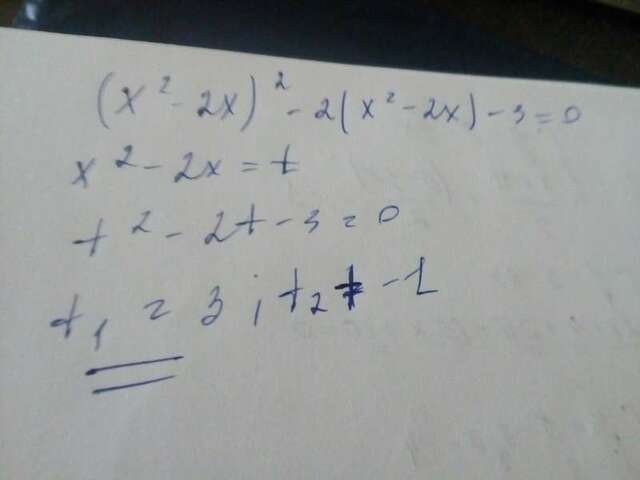 (x² - 2x)² - 2(x² - 2x) - 3 = 0
x² - 2x = t
t² - 2t - 3 = 0
t₁ = 3; t₂ = -1